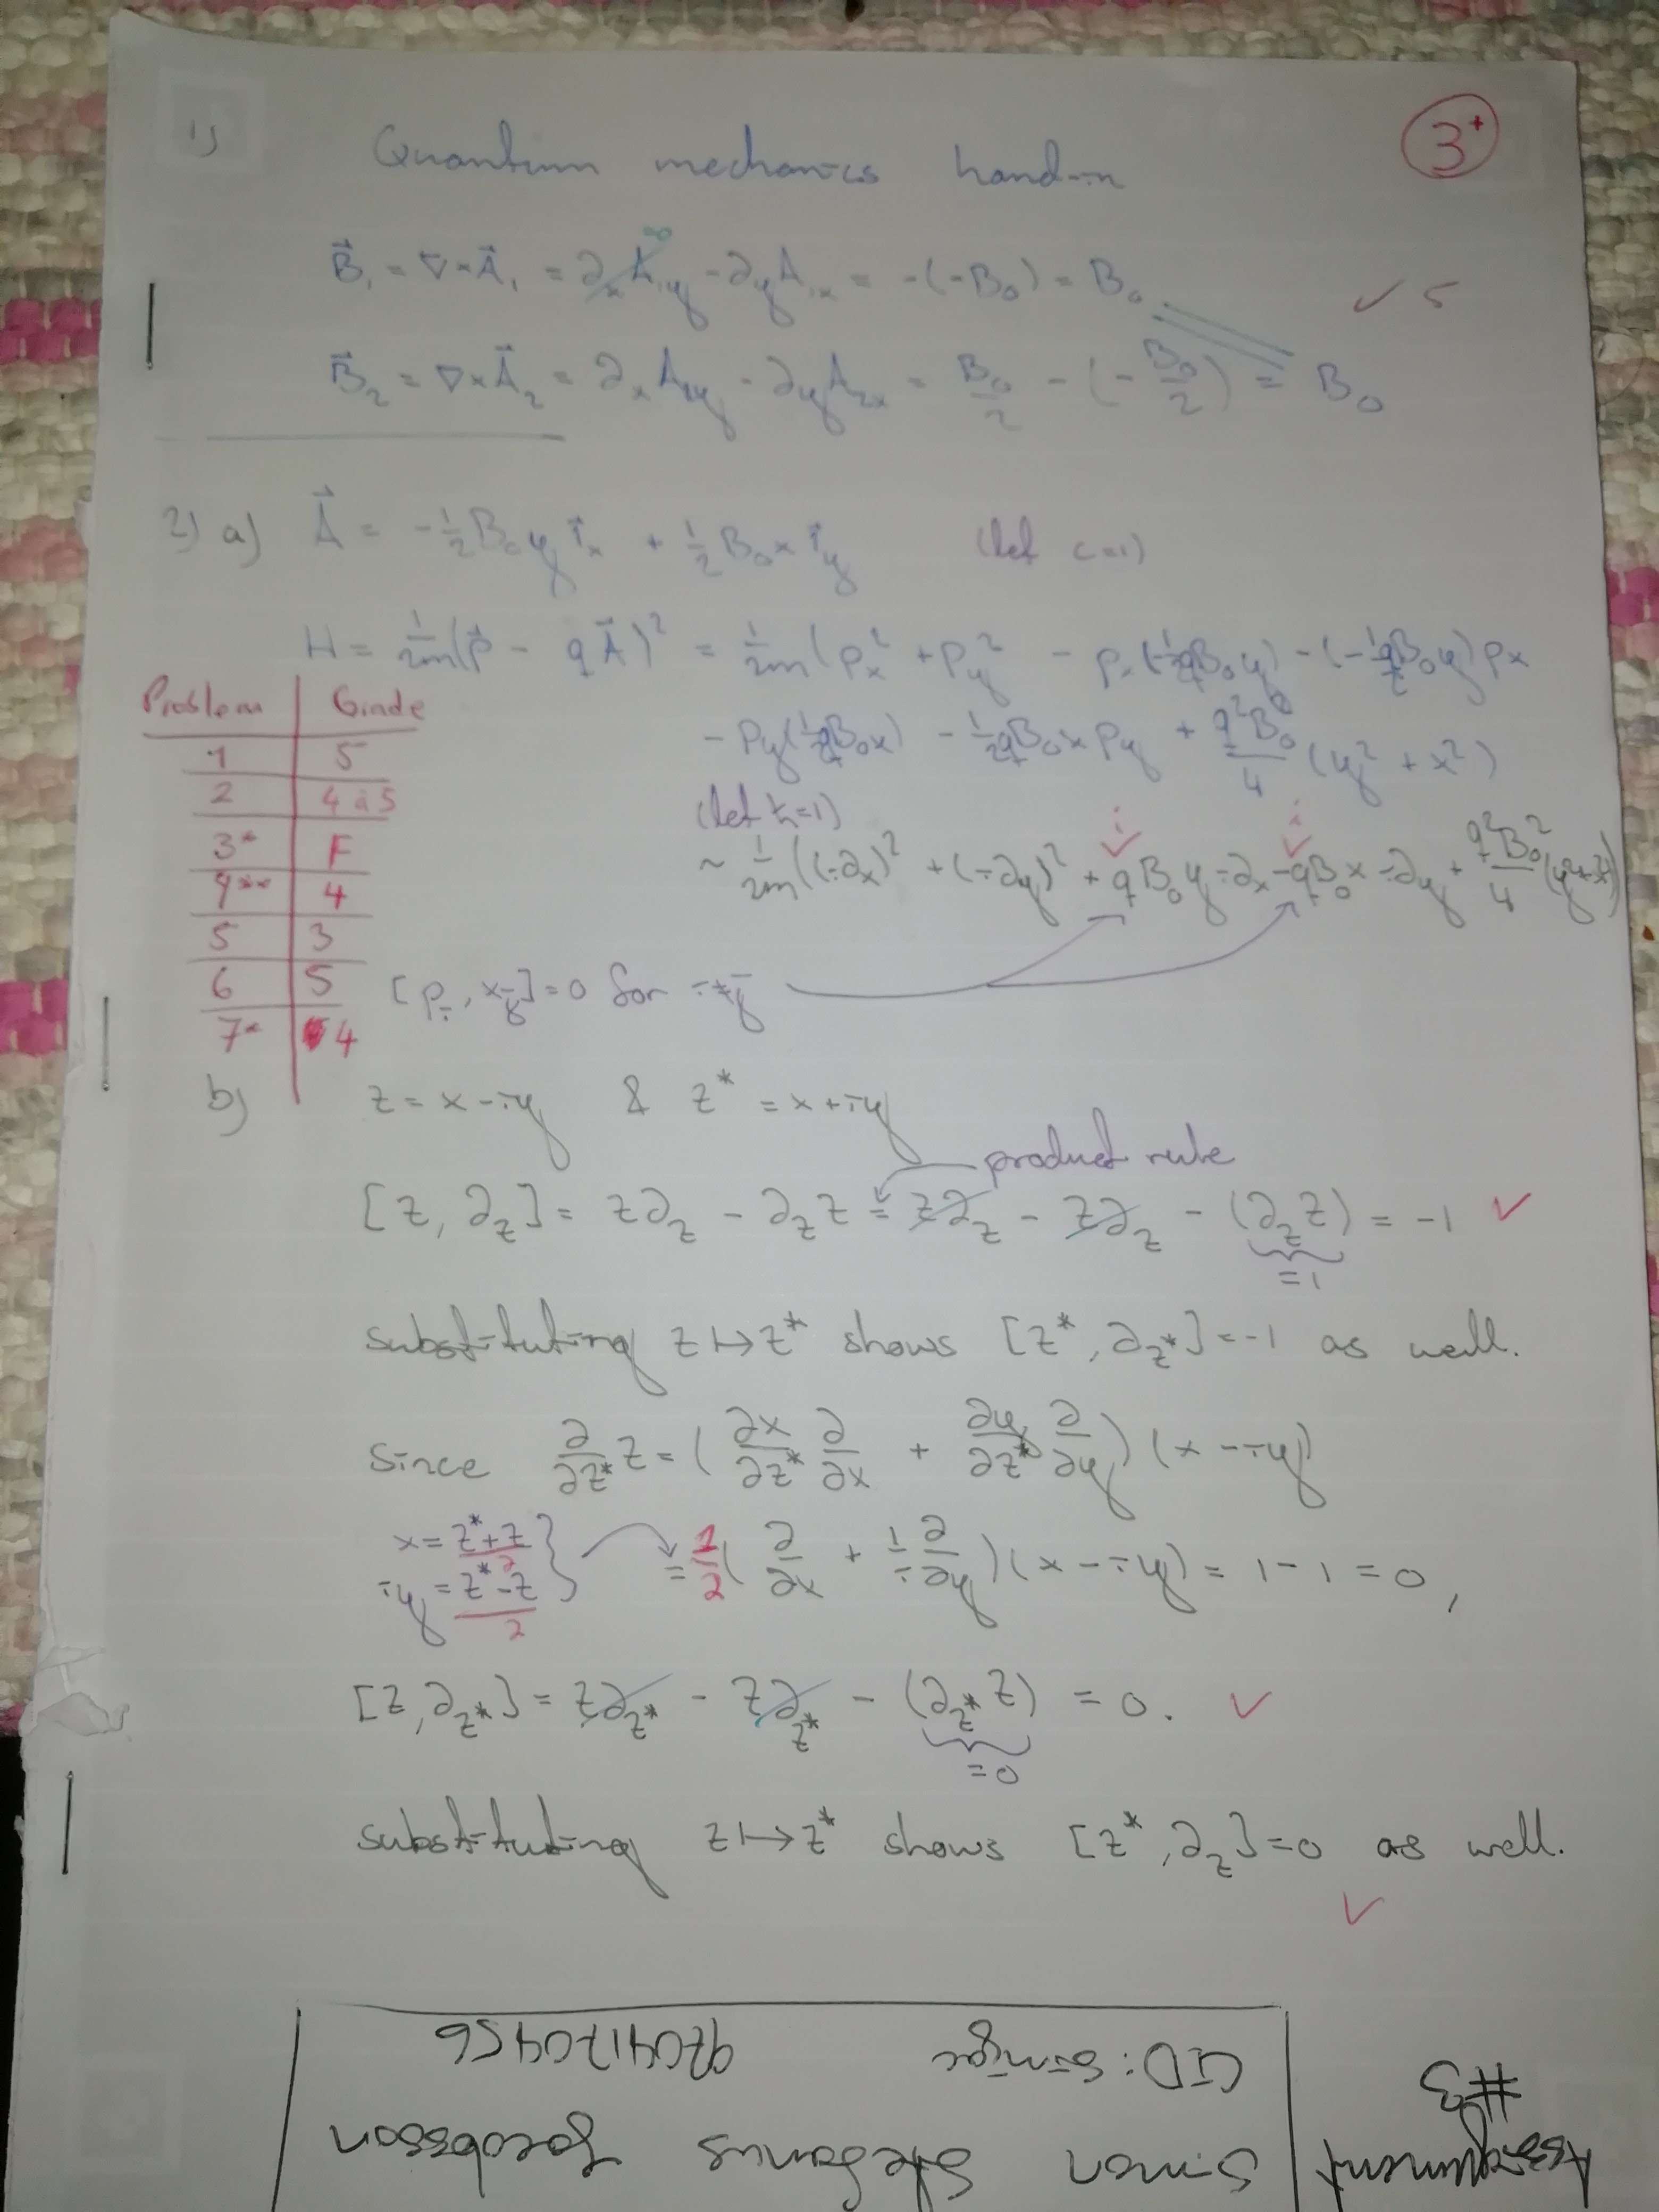 1)
Quantum mechanics hand-in
3+
B⃗₁ = ∇×A⃗₁ = ∂ₓA₁ᵧ - ∂ᵧA₁ₓ = -(-B₀) = B₀
✓ 5
B⃗₂ = ∇×A⃗₂ = ∂ₓA₂ᵧ - ∂ᵧA₂ₓ = B₀/2 - (-B₀/2) = B₀
2) a) A⃗ = -½B₀y î_x + ½B₀x î_y (let c=1)
H = 1/2m (p⃗ - qA⃗)² = 1/2m (pₓ² + p_y² - pₓ(-½qB₀y) - (-½qB₀y)pₓ
- p_y(½qB₀x) - ½qB₀x p_y + q²B₀²/4 (y² + x²)
(let ħ=1)
i i
~ 1/2m ((i∂ₓ)² + (i∂_y)² + qB₀y i∂ₓ - qB₀x i∂_y + q²B₀²/4 (y²+x²))
Problem | Grade
1 | 5
2 | 4 à 5
3* | F
4** | 4
5 | 3
6 | 5
7* | 4
[p_i, x_j] = 0 for i≠j
b) z = x - iy & z* = x + iy
product rule
[z, ∂_z] = z∂_z - ∂_z z = z∂_z - z∂_z - (∂_z z) = -1 ✓
=1
substituting z ↦ z* shows [z*, ∂_z*] = -1 as well.
since ∂/∂z* z = (∂x/∂z* ∂/∂x + ∂y/∂z* ∂/∂y)(x - iy)
x = z*+z / 2
iy = z*-z / 2
= 1/2 (∂/∂x + 1/i ∂/∂y)(x - iy) = 1 - 1 = 0,
[z, ∂_z*] = z∂_z* - z∂_z* - (∂_z* z) = 0. ✓
=0
substituting z ↦ z* shows [z*, ∂_z] = 0 as well.
✓
Assignment #3
Simon Stefanus Jacobsson
CID: simjac 9704170456